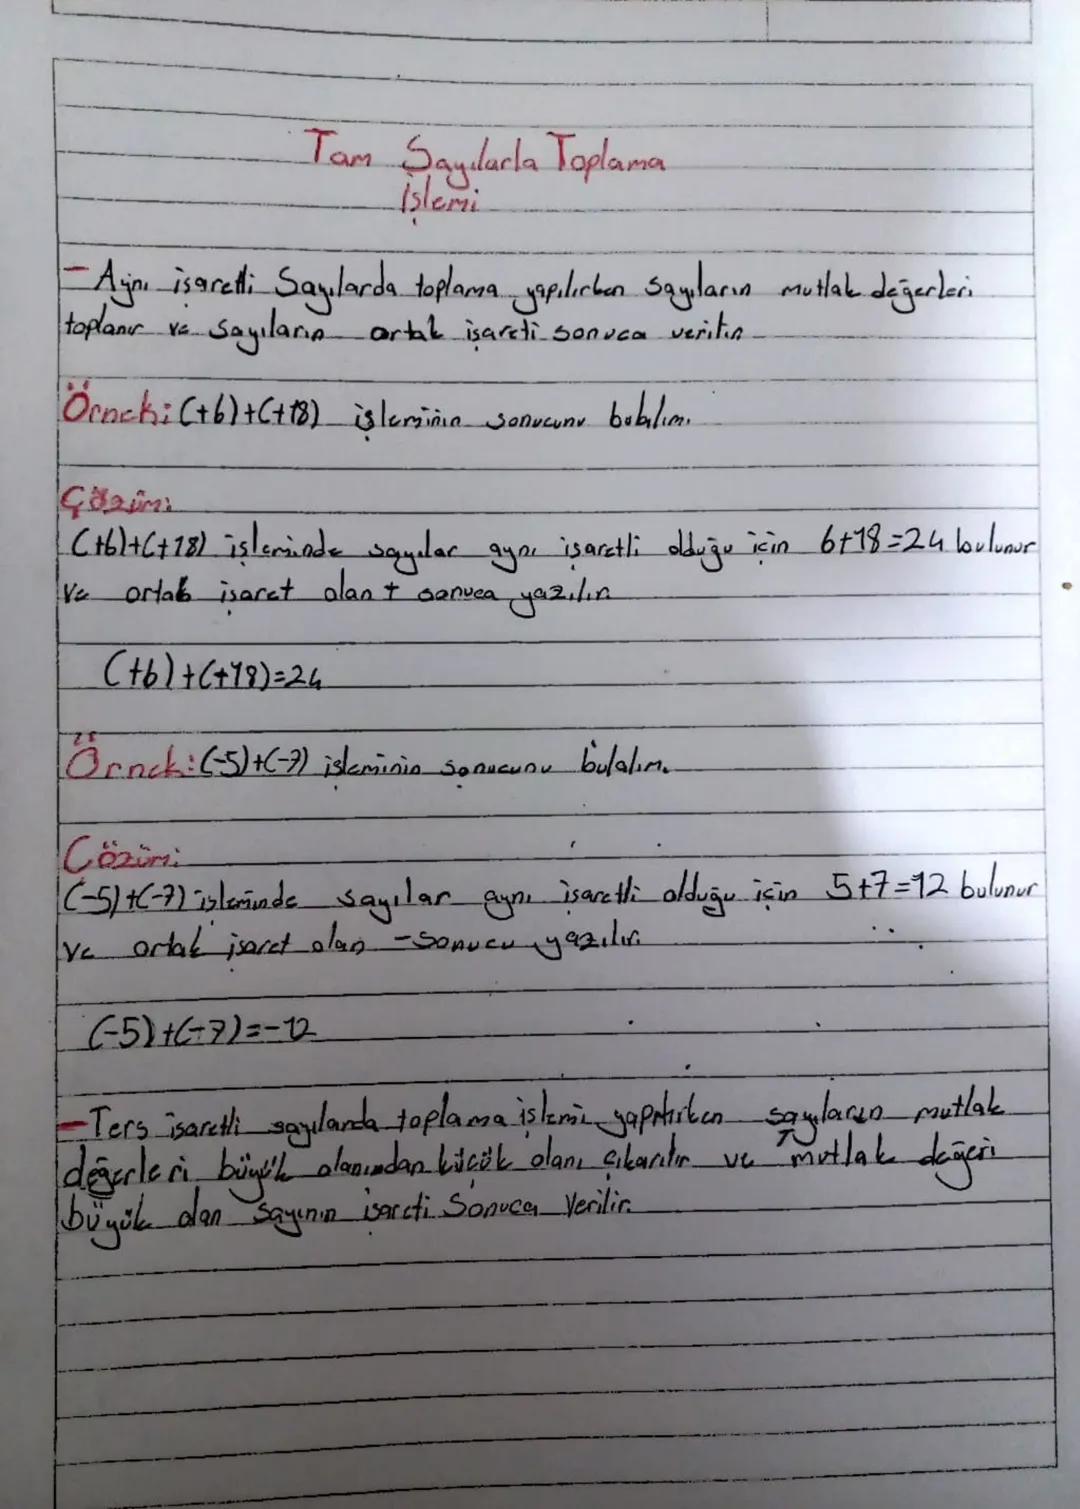 Tam Sayılarla Toplama
İşlemi
- Aynı işaretli Sayılarda toplama yapılırken sayıların mutlak değerleri
toplanır ve sayıların ortak işareti sonuca verilir.
Örnek: (+6)+(+18) işleminin sonucunu bulalım.
Çözüm:
(+6)+(+18) işleminde sayılar aynı işaretli olduğu için 6+18=24 bulunur
ve ortak işaret olan + sonuca yazılır.
(+6)+(+18)=24
Örnek: (-5)+(-7) işleminin sonucunu bulalım.
Çözüm:
(-5)+(-7) işleminde sayılar aynı işaretli olduğu için 5+7=12 bulunur
ve ortak işaret olan - sonucu yazılır.
(-5)+(-7)=-12
- Ters işaretli sayılarda toplama işlemi yapılırken sayıların mutlak
değerleri büyük olanından küçük olanı çıkarılır ve mutlak değeri
büyük olan sayının işareti Sonuca Verilir.